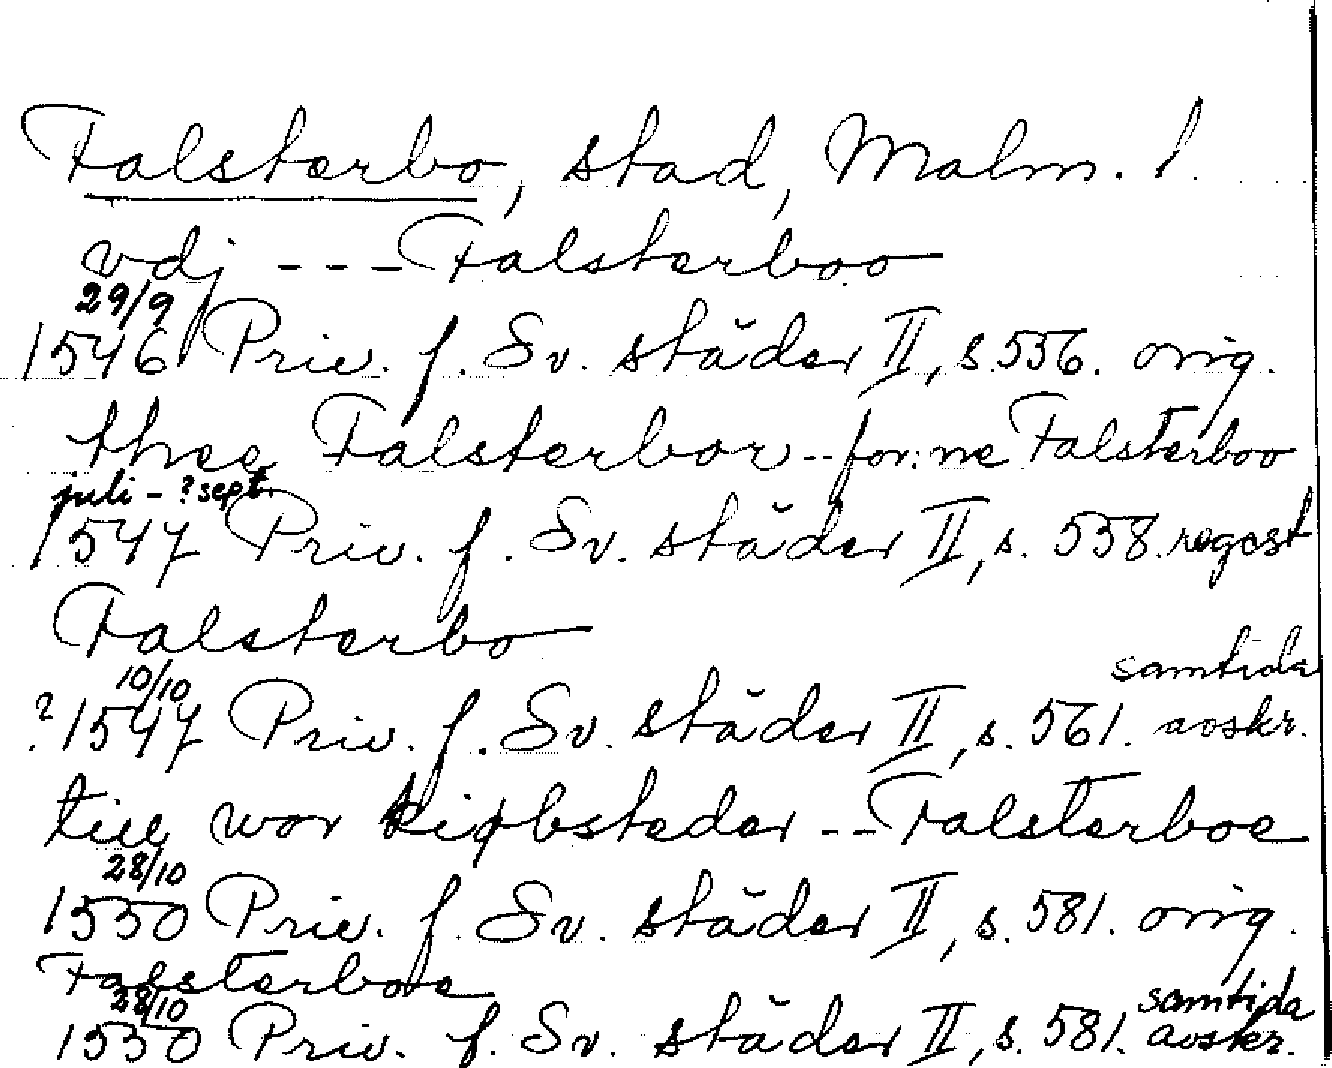 Falsterbo, stad, Malm. l.
vdj --- Falsterboo
29/9
1546 Priv. f. Sv. städer II, s. 556. orig.
thee Falsterbor -- for:ne Falsterboo
juli - ? sept.
1547 Priv. f. Sv. städer II, s. 558. regest
Falsterbo
10/10
? 1547 Priv. f. Sv. städer II, s. 561. samtida avskr.
till wor kiøbsteder -- Falsterboe
28/10
1550 Priv. f. Sv. städer II, s. 581. orig.
Falsterboe
28/10
1550 Priv. f. Sv. städer II, s. 581. samtida avskr.